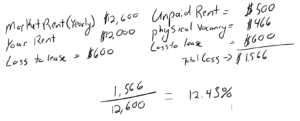 Market Rent (Yearly) $12,600
Your Rent $12,000
Loss to lease = $600
Unpaid Rent = $500
physical Vacancy = $466
Loss to lease = $600
Total Loss → $1,566
1,566
12,600
= 12.43%